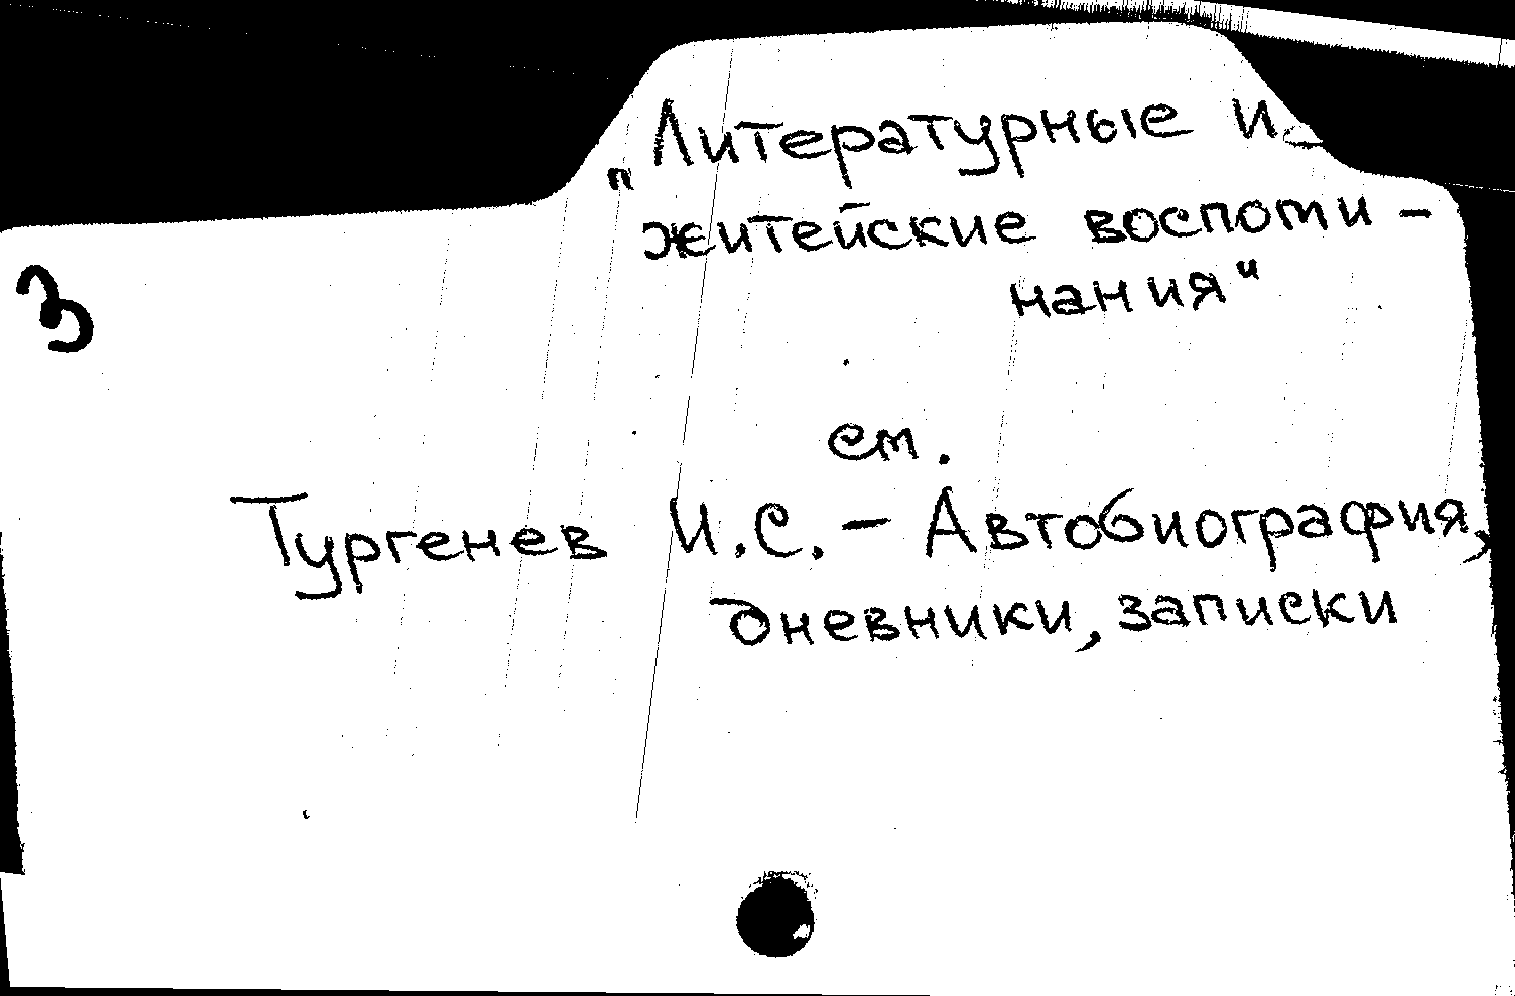 „Литературные и
житейские воспоми-
нания“
3
см.
Тургенев И.С. — Автобиография,
дневники, записки